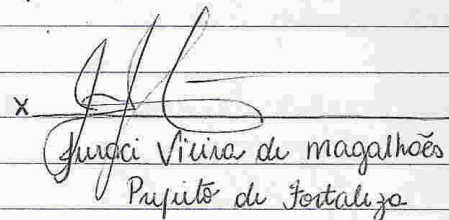 x
Juraci Vieira de magalhães
Prefeito de Fortaleza